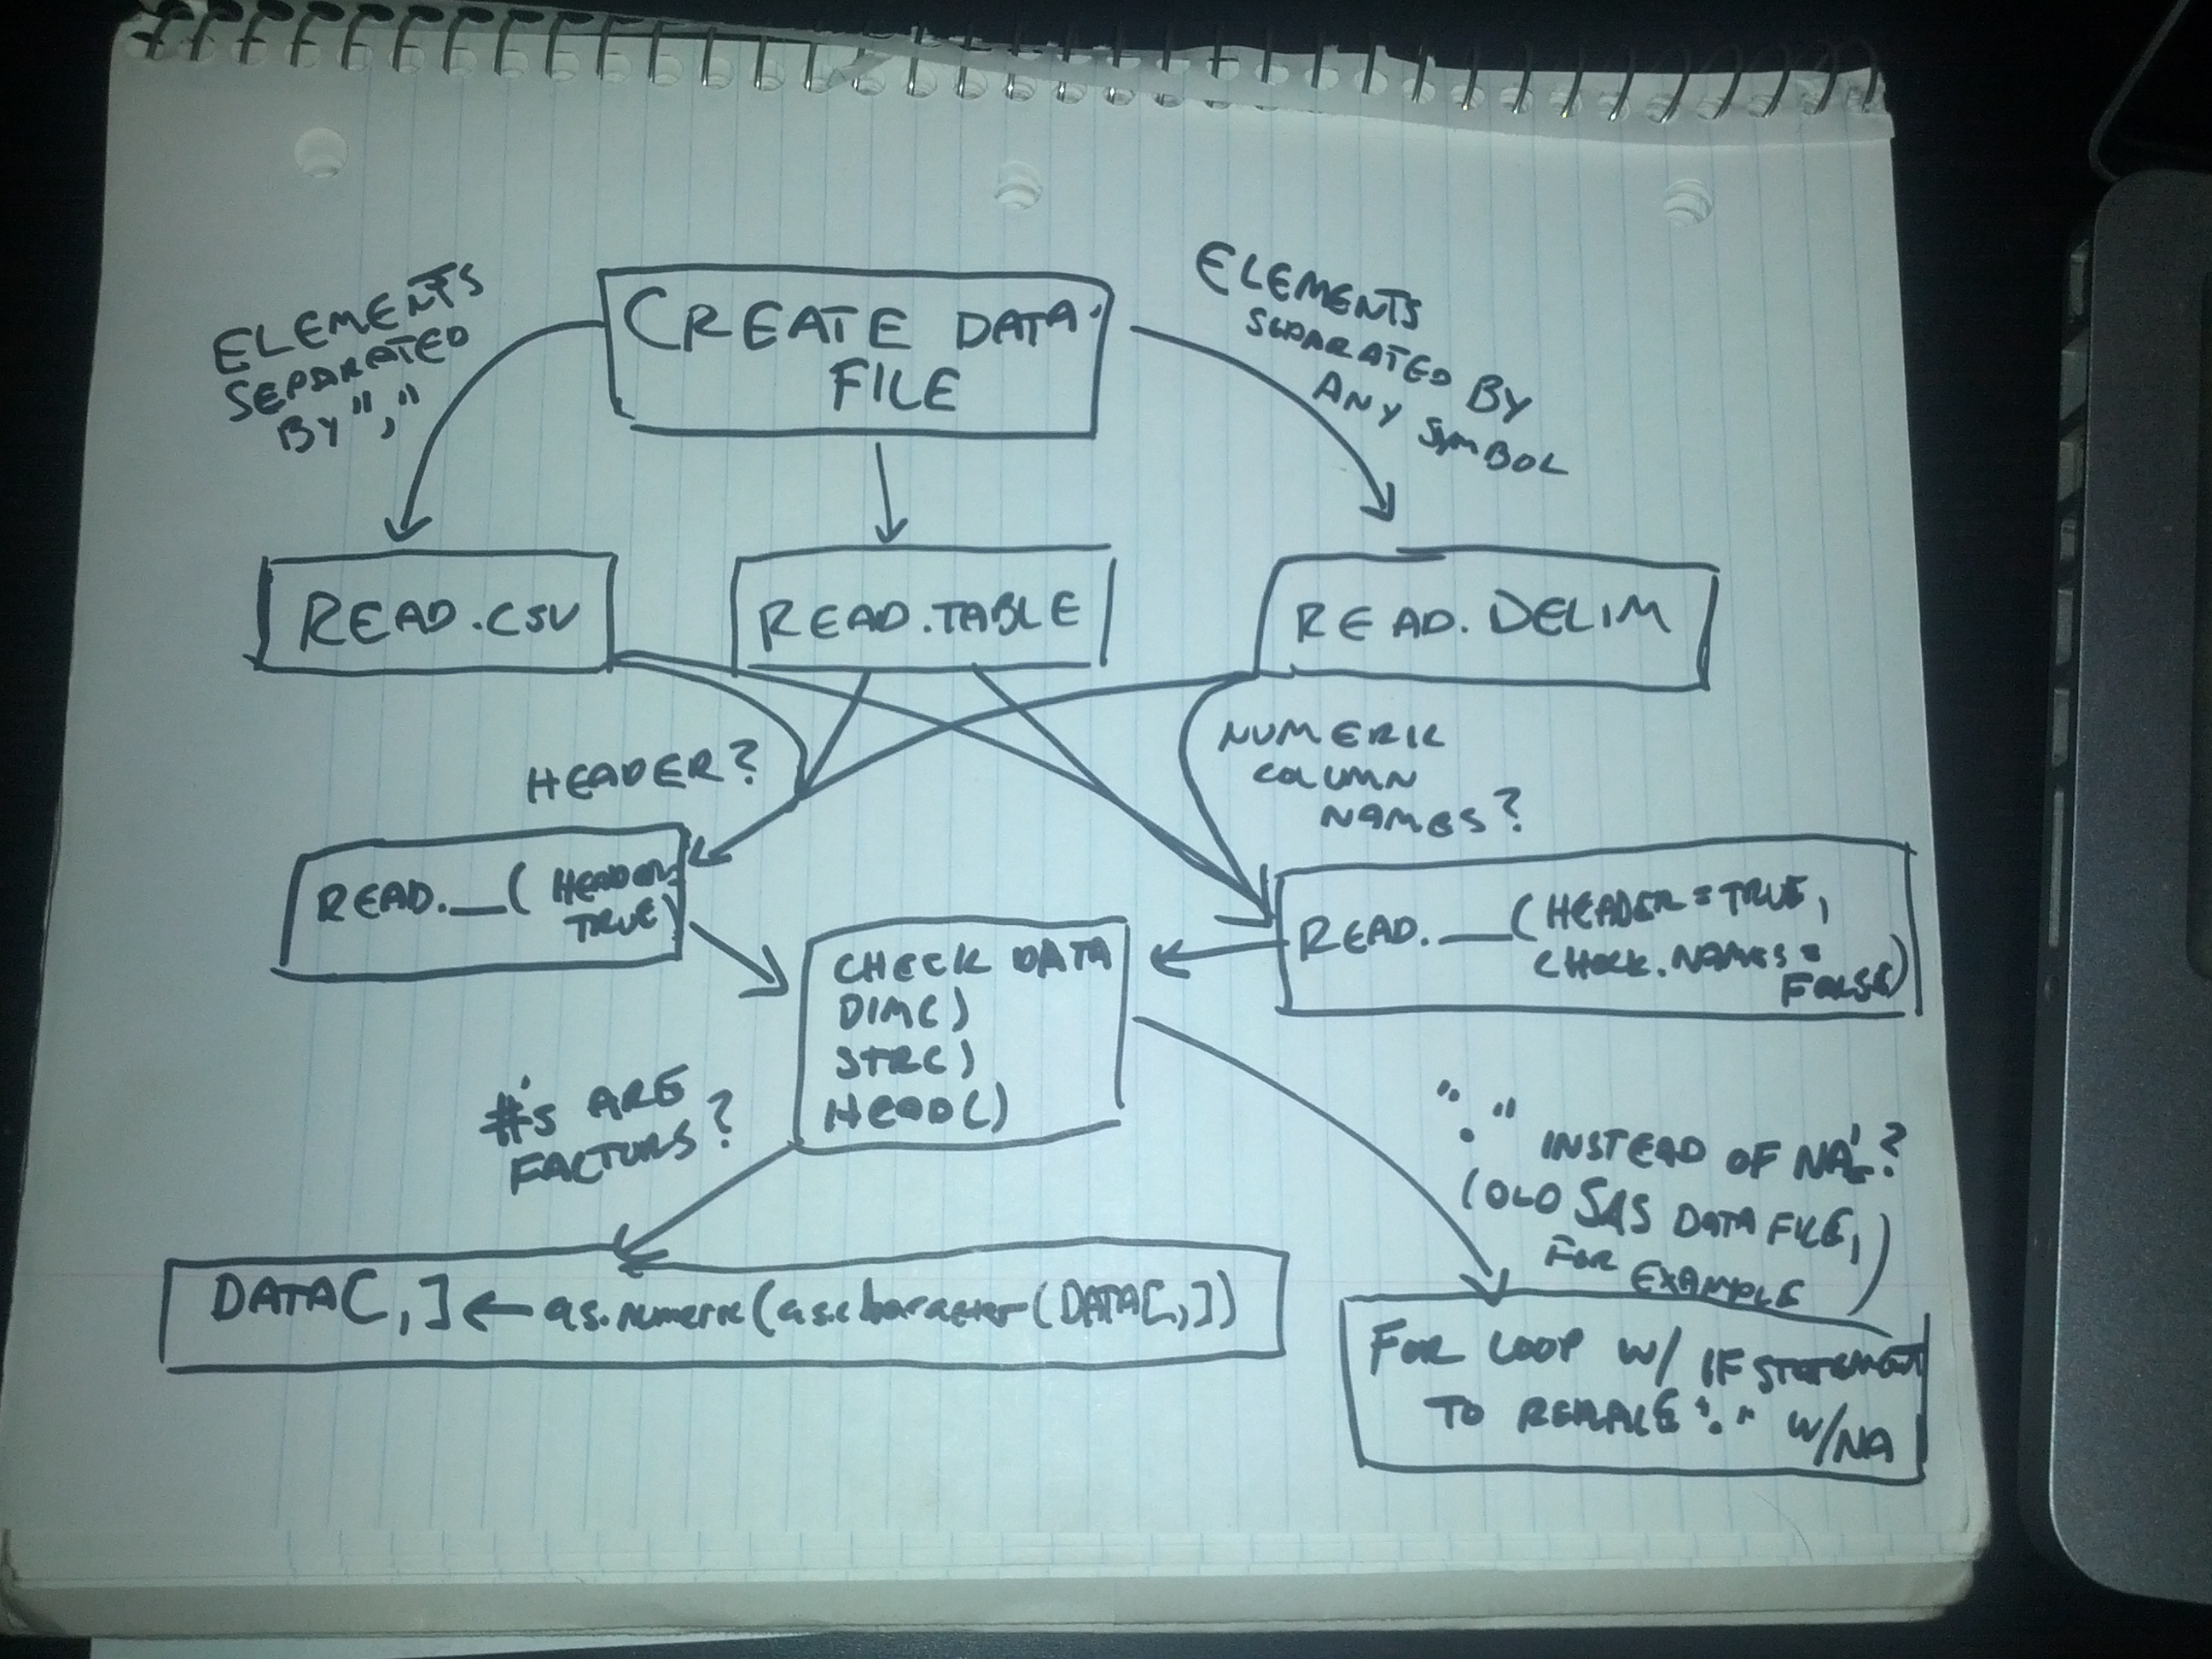 CREATE DATA
FILE
ELEMENTS
SEPARATED
BY ","
ELEMENTS
SEPARATED BY
ANY SYMBOL
READ.CSV
READ.TABLE
READ.DELIM
HEADER?
NUMERIC
COLUMN
NAMES?
READ.__( HEADER=
TRUE)
READ.__(HEADER=TRUE,
CHECK.NAMES=
FALSE)
CHECK DATA
DIM()
STR()
HEAD()
#'S ARE
FACTORS?
"." INSTEAD OF NA'S?
(OLD SAS DATA FILE,
FOR EXAMPLE)
DATA[,] ← as.numeric(as.character(DATA[,])
FOR LOOP W/ IF STATEMENT
TO REPLACE "." W/NA